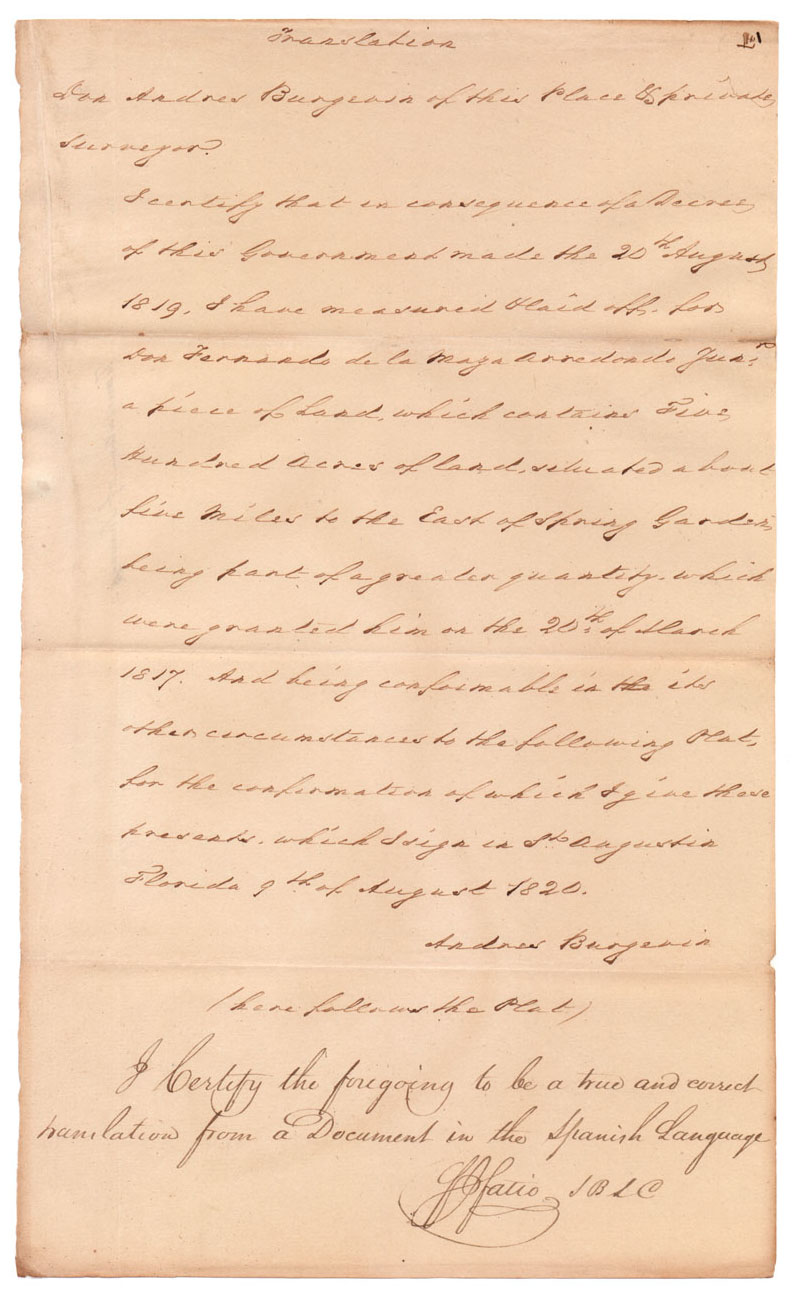 Translation
Don Andres Burgevin of this Place & private
Surveyor.
I certify that in consequence of a Decree
of this Government made the 20th August
1819, I have measured & laid off, for
Don Fernando de la Maza Arredondo Junr
a piece of Land, which contains Five
Hundred Acres of land, situated about
five Miles to the East of Spring Garden,
being part of a greater quantity, which
were granted him on the 20th of March
1817. And being conformable in the its
other circumstances to the following Plat,
for the confirmation of which I give these
presents, which I sign in St Augustin
Florida 9th of August 1820.
Andres Burgevin
(here follows the Plat)
I Certify the foregoing to be a true and correct
translation from a Document in the Spanish Language
Fatio S B L C